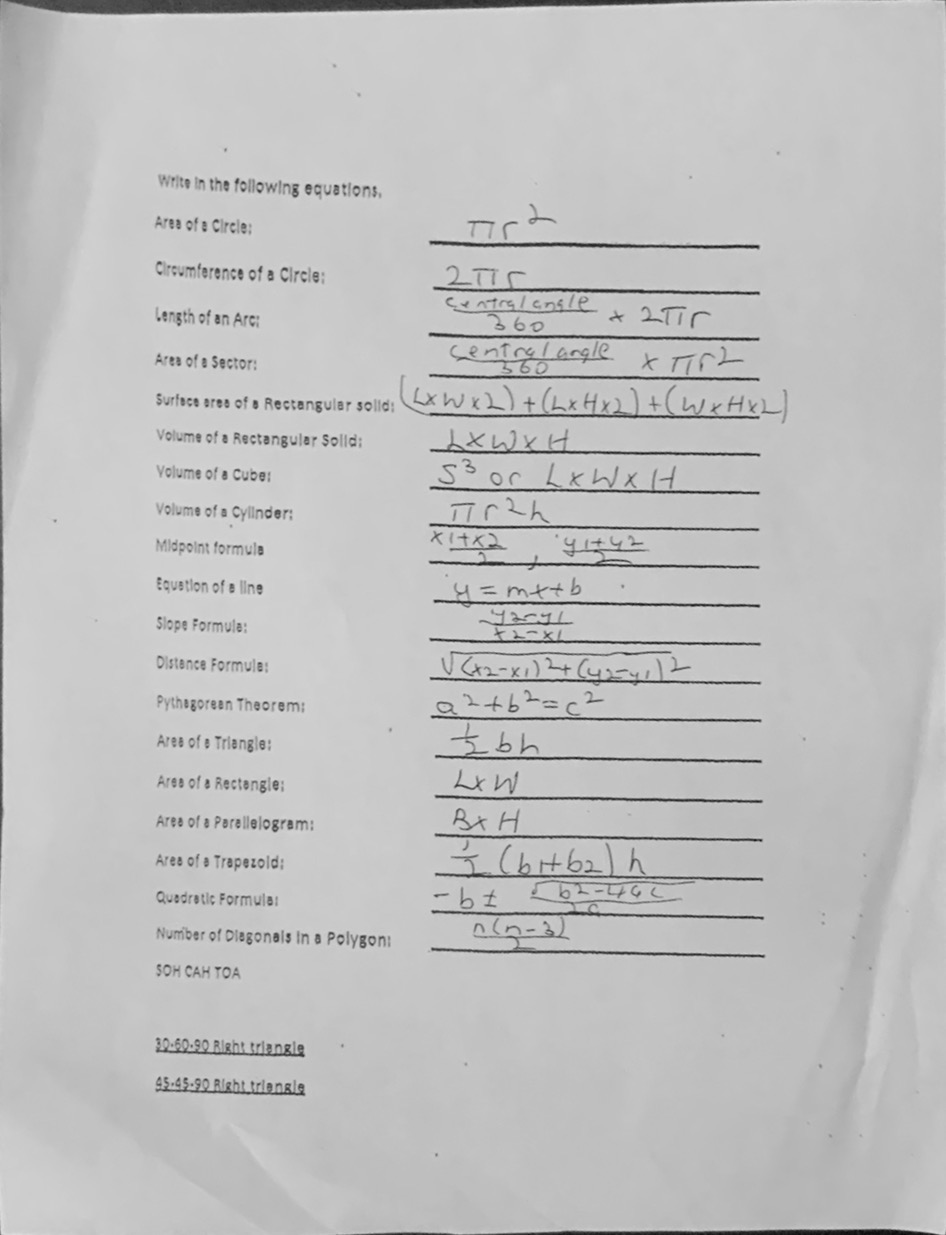 Write in the following equations.
Area of a Circle: πr²
Circumference of a Circle: 2πr
Length of an Arc: central angle/360 × 2πr
Area of a Sector: central angle/360 × πr²
Surface area of a Rectangular solid: (L×W×2)+(L×H×2)+(W×H×2)
Volume of a Rectangular Solid: L×W×H
Volume of a Cube: S³ or L×W×H
Volume of a Cylinder: πr²h
Midpoint formula x1+x2/2 , y1+y2/2
Equation of a line y=mx+b
Slope Formula: y2-y1/x2-x1
Distance Formula: √(x2-x1)²+(y2-y1)²
Pythagorean Theorem: a²+b²=c²
Area of a Triangle: 1/2 bh
Area of a Rectangle: L×W
Area of a Parallelogram: B×H
Area of a Trapezoid: 1/2 (b1+b2)h
Quadratic Formula: -b ± √b²-4ac/2a
Number of Diagonals in a Polygon: n(n-3)/2
SOH CAH TOA
30-60-90 Right triangle
45-45-90 Right triangle